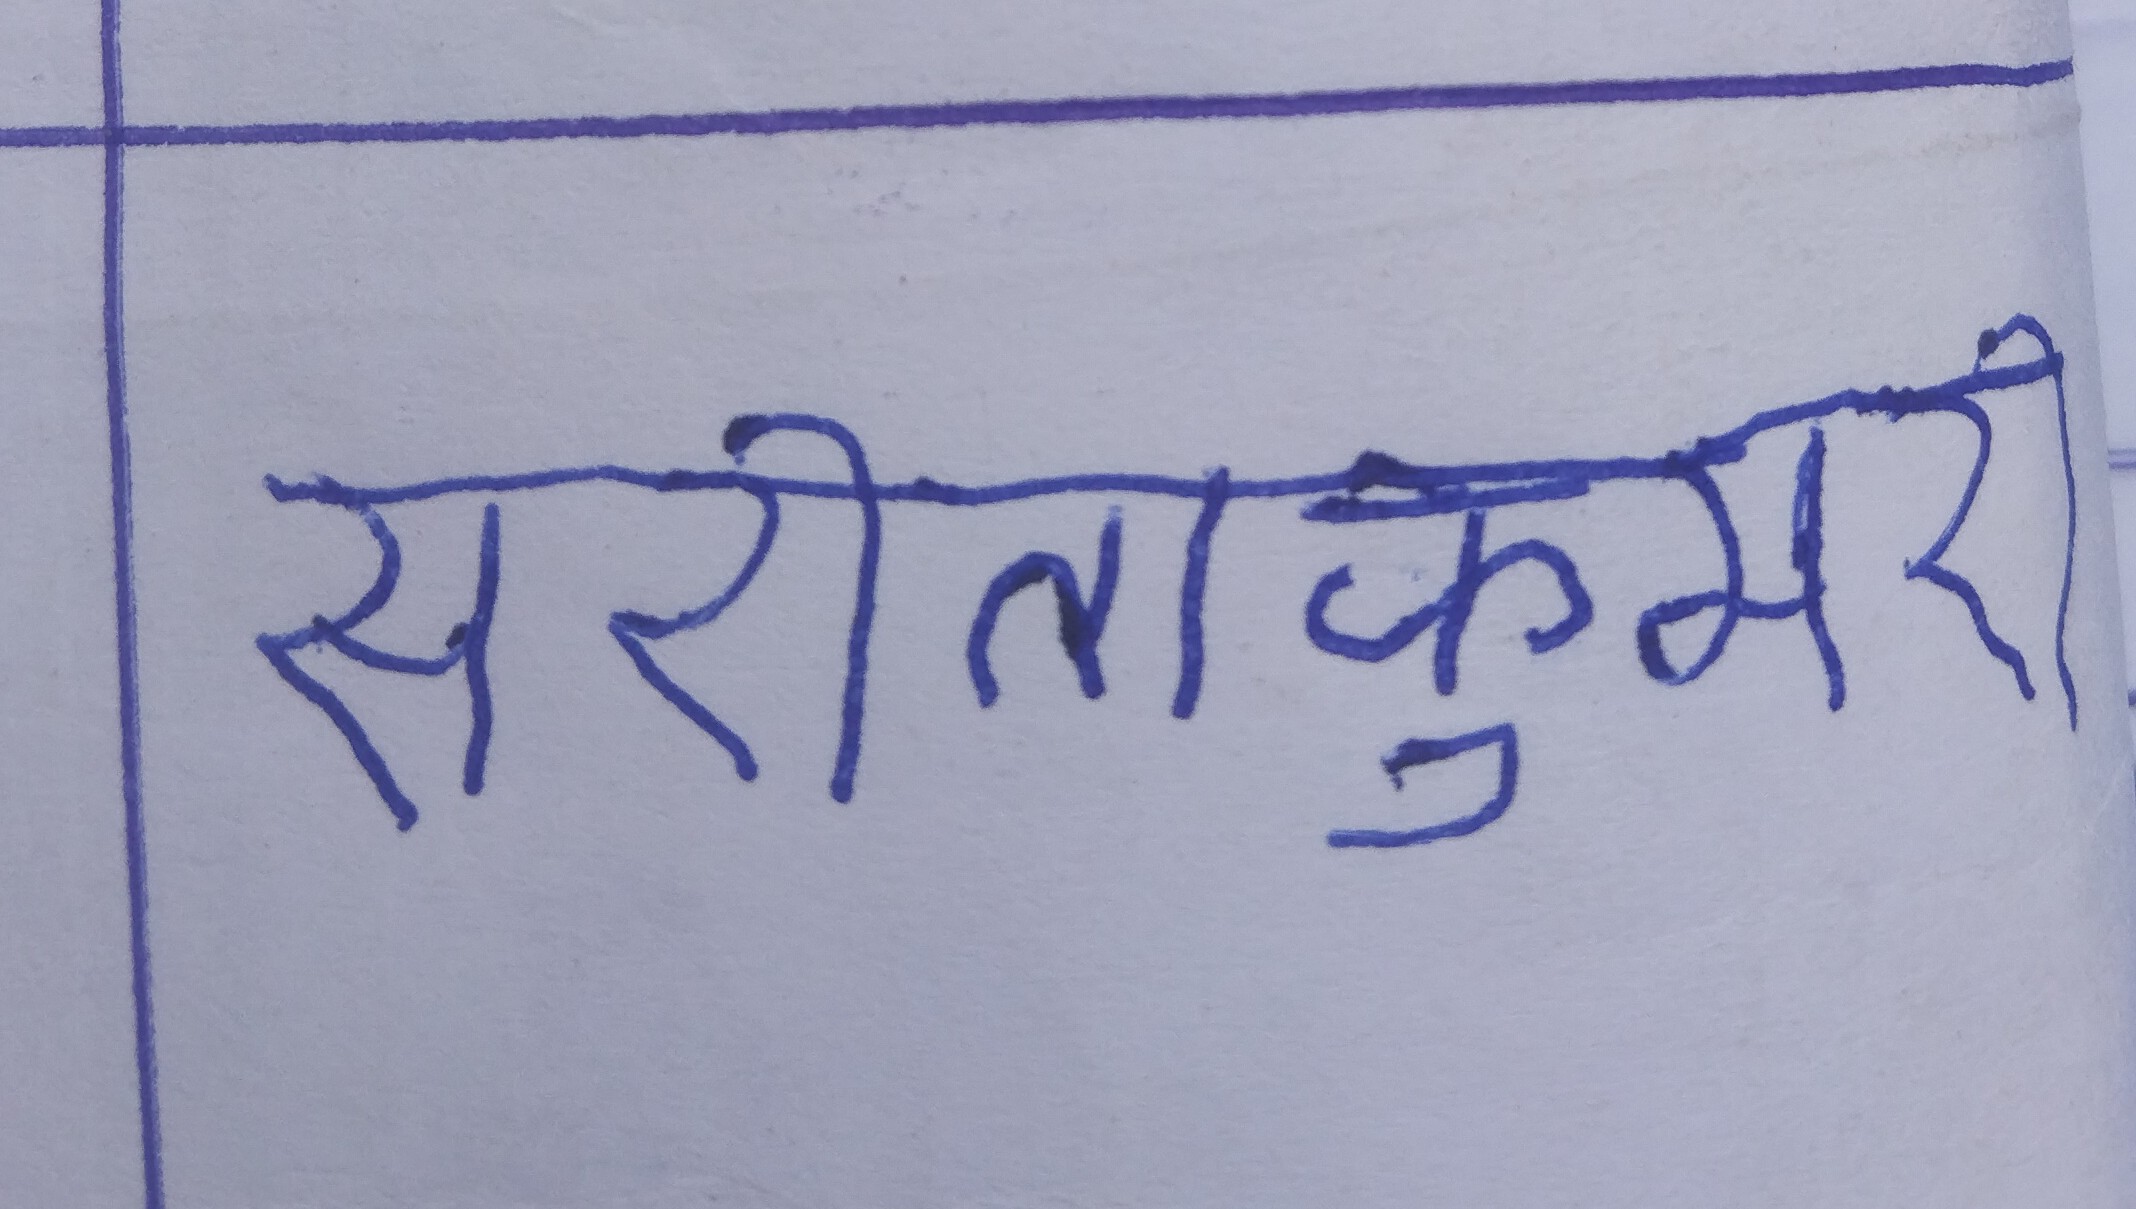 सरीता कुमरी